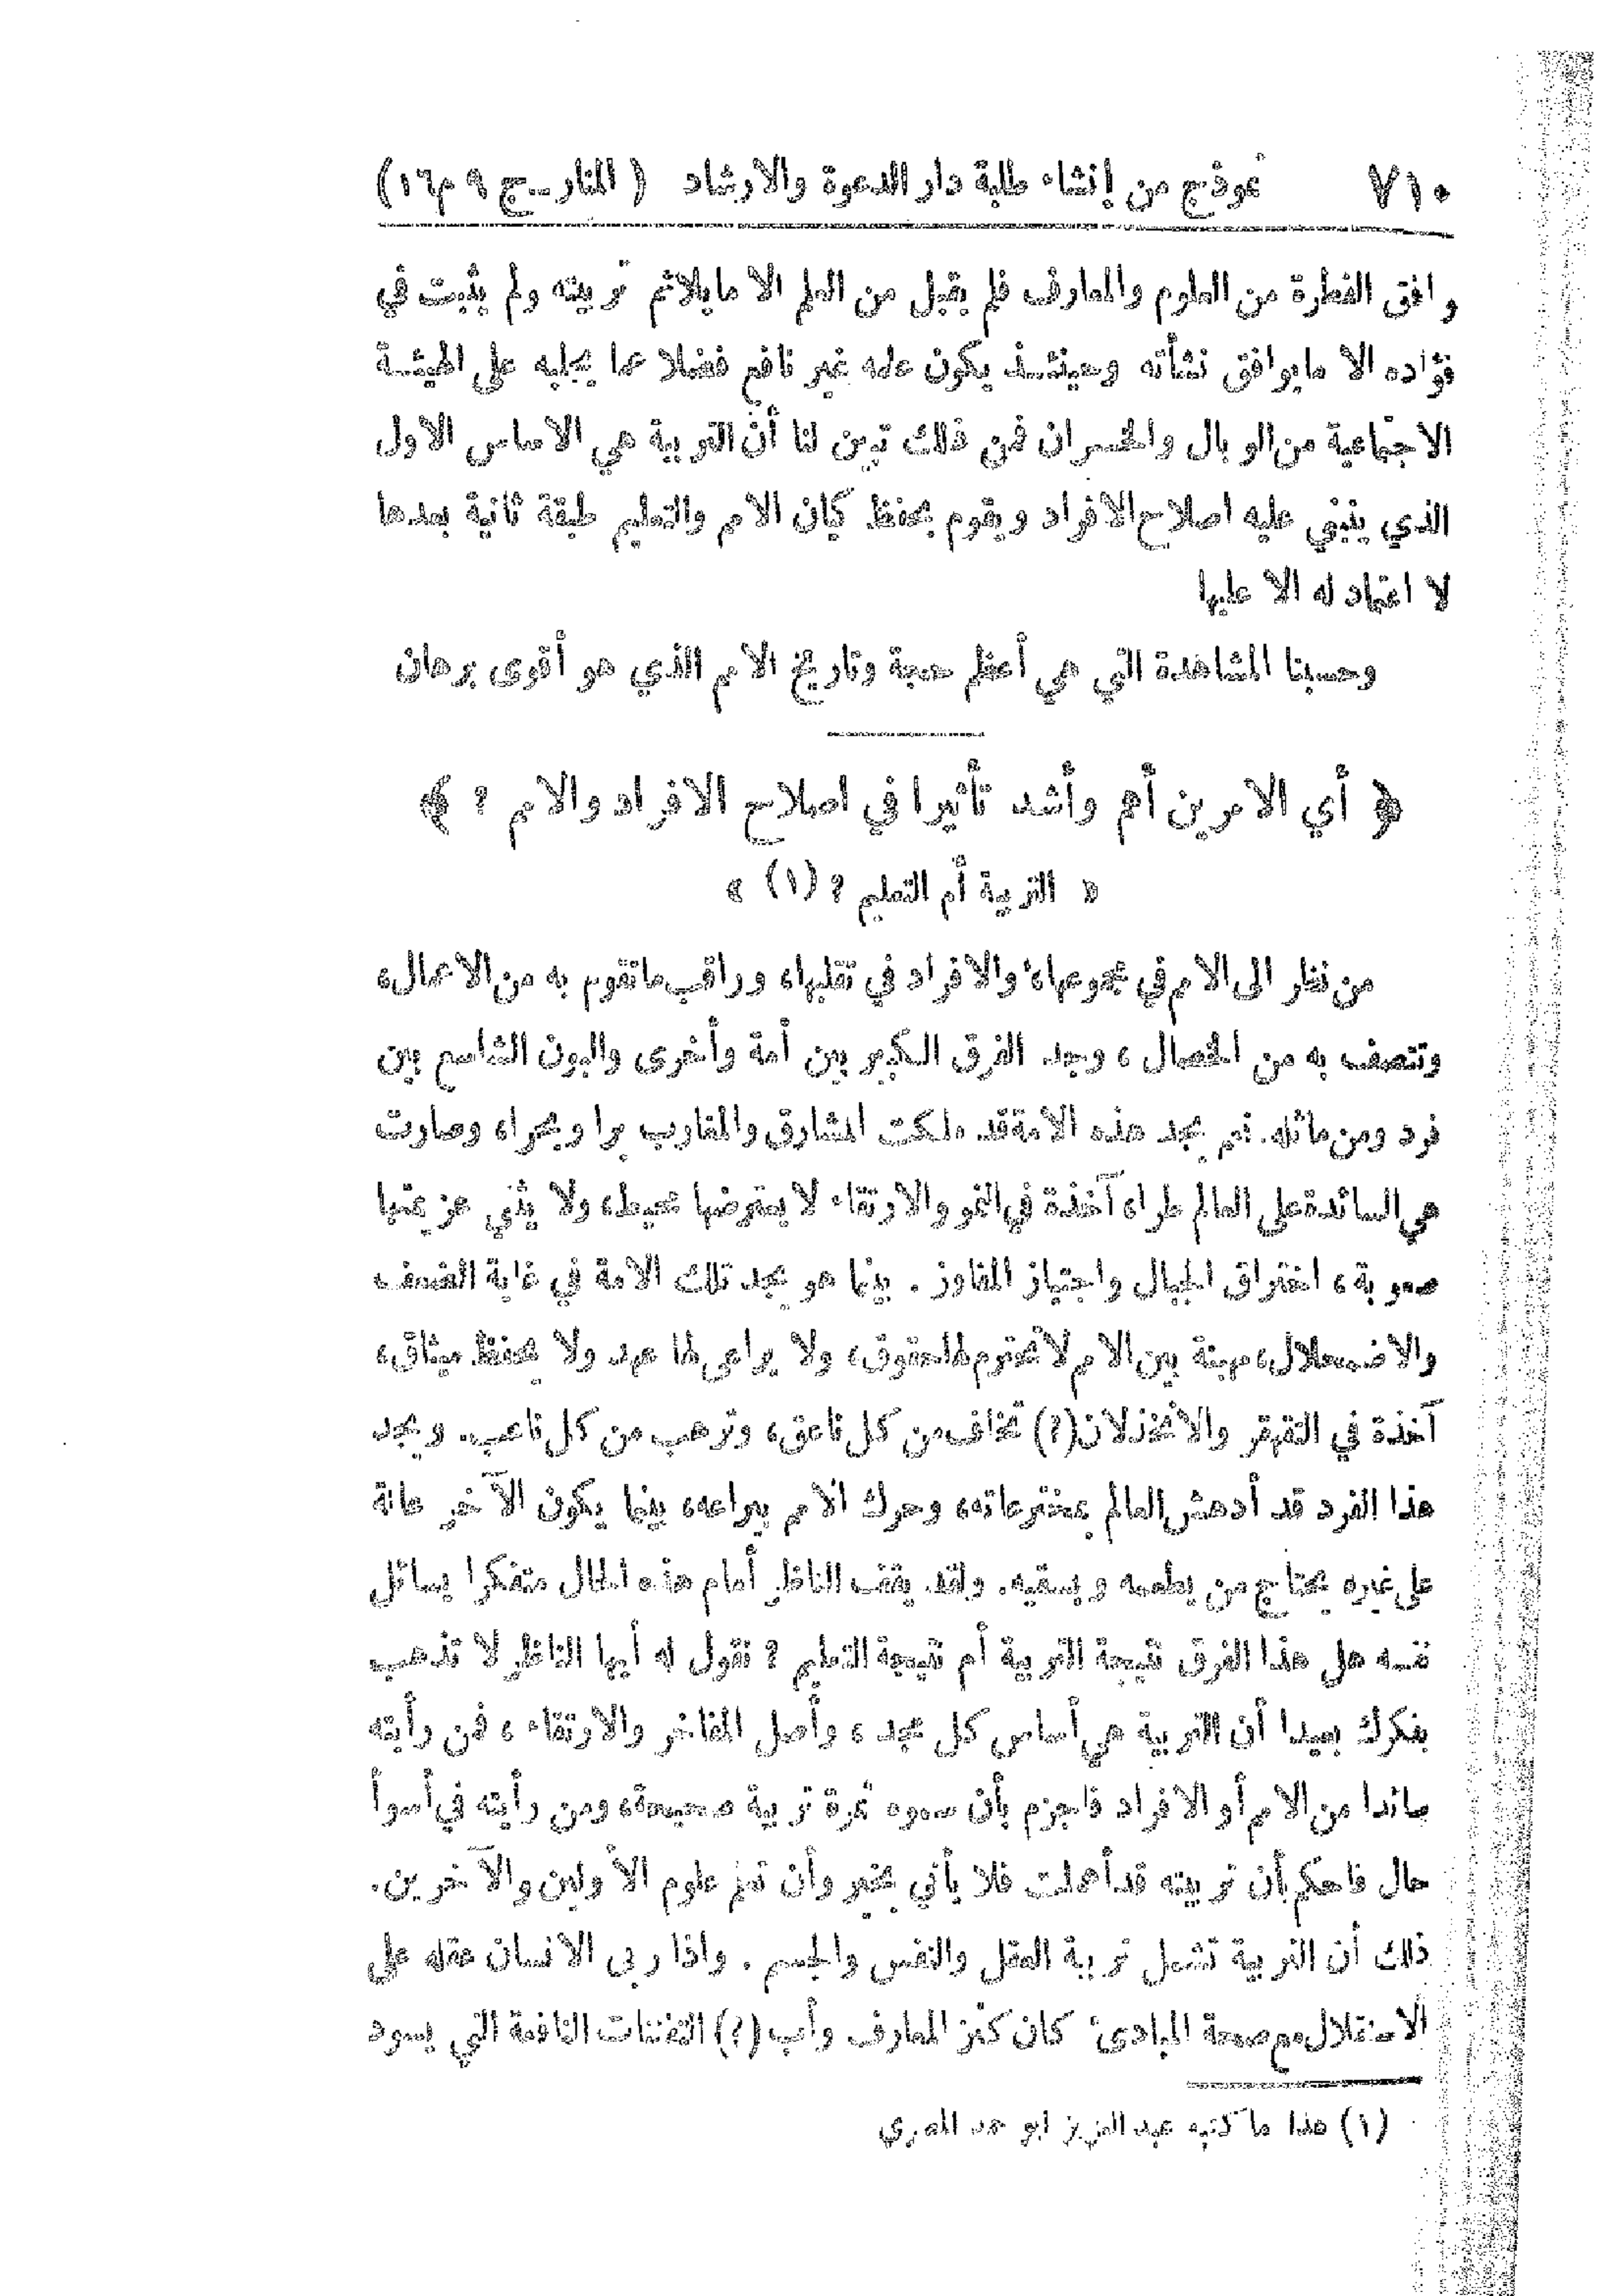 ٧١٠ نموذج من إنشاء طلبة دار الدعوة والارشاد ( المنار ــ ج ٩ م ١٦ )
وافق الفطرة من العلوم والمعارف فلم يقبل من العلم الا ما يلائم تربيته ولم يثبت في
فؤاده الا ما يوافق نشأته وحينئذ يكون علمه غير نافع فضلا عما يجلبه على الهيئة
الاجتماعية من الوبال والخسران فمن ذلك تبين لنا أن التربية هي الاساس الاول
الذي ينبني عليه اصلاح الافراد ويقوم بحفظ كيان الامم والتعليم طبقة ثانية بعدها
لا اعتماد له الا عليها
وحسبنا المشاهدة التي هي أعظم حجة وتاريخ الامم الذي هو أقوى برهان
﴿ أي الامرين أهم وأشد تأثيرا في اصلاح الافراد والامم ؟ ﴾
« التربية أم التعليم ؟ (١) »
من نظر الى الامم في مجموعها، والافراد في تقلبها، وراقب ما تقوم به من الاعمال،
وتتصف به من الخصال، وجد الفرق الكبير بين أمة وأخرى والبون الشاسع بين
فرد ومن ماثله. نعم يجد هذه الامة قد ملكت المشارق والمغارب برا وبحرا، وصارت
هي السائدة على العالم طرا، آخذة في النمو والارتقاء لا يعترضها محيط، ولا يثني عزيمتها
صعوبة، اختراق الجبال واجتياز المفاوز. بينما هو يجد تلك الامة في غاية الضعف
والاضمحلال، مهينة بين الامم لا تحترم لها حقوق، ولا يراعى لها عهد ولا يحفظ ميثاق،
آخذة في التقهقر والانخذلان(؟) تخاف من كل ناعق، وترهب من كل ناعب. ويجد
هذا الفرد قد أدهش العالم بمخترعاته، وحرك الامم بيراعه، بينما يكون الآخر عالة
على غيره يحتاج من يطعمه ويسقيه. ولقد يقف الناظر أمام هذه الحال متفكرا يسائل
نفسه هل هذا الفرق نتيجة التربية أم نتيجة التعليم ؟ نقول له أيها الناظر لا تذهب
بفكرك بعيدا أن التربية هي أساس كل مجد، وأصل المفاخر والارتقاء، فمن رأيته
سائدا من الامم أو الافراد فاجزم بأن سموه ثمرة تربية صحيحة، ومن رأيته في أسوأ
حال فاحكم بأن تربيته قد أهملت فلا يأتي بخير وأن تعلم علوم الأولين والآخرين.
ذلك أن التربية تشمل تربية العقل والنفس والجسم. واذا ربى الانسان عقله على
الاستقلال مع صحة المبادئ كان كنز المعارف وأب (؟) التفننات النافعة التي يسود
(١) هذا ما كتبه عبد العزيز ابو حمد المصري